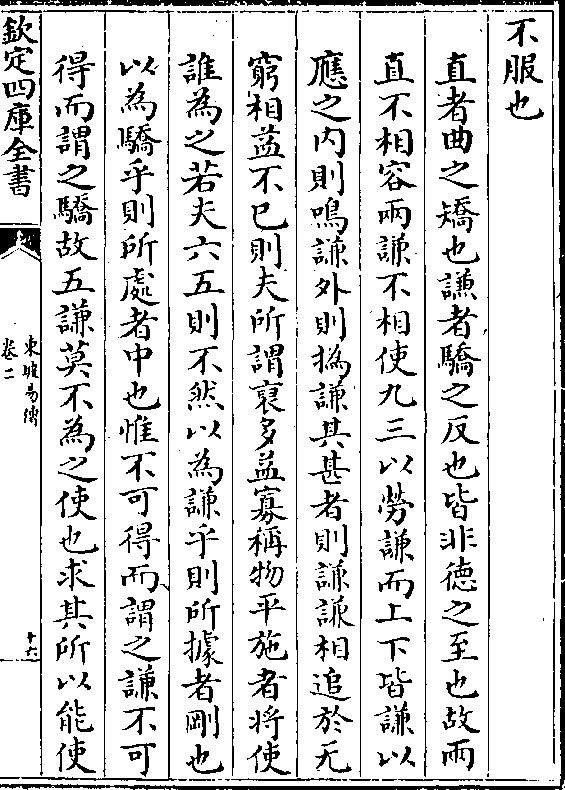 不服也
直者曲之矯也謙者驕之反也皆非德之至也故兩
直不相容兩謙不相使九三以勞謙而上下皆謙以
應之内則鳴謙外則撝謙其甚者則謙謙相追於无
窮相益不已則夫所謂裒多益寡稱物平施者将使
誰為之若夫六五則不然以為謙乎則所據者剛也
以為驕乎則所處者中也惟不可得而謂之謙不可
得而謂之驕故五謙莫不為之使也求其所以能使
欽定四庫全書
東坡易傳
卷二
十六